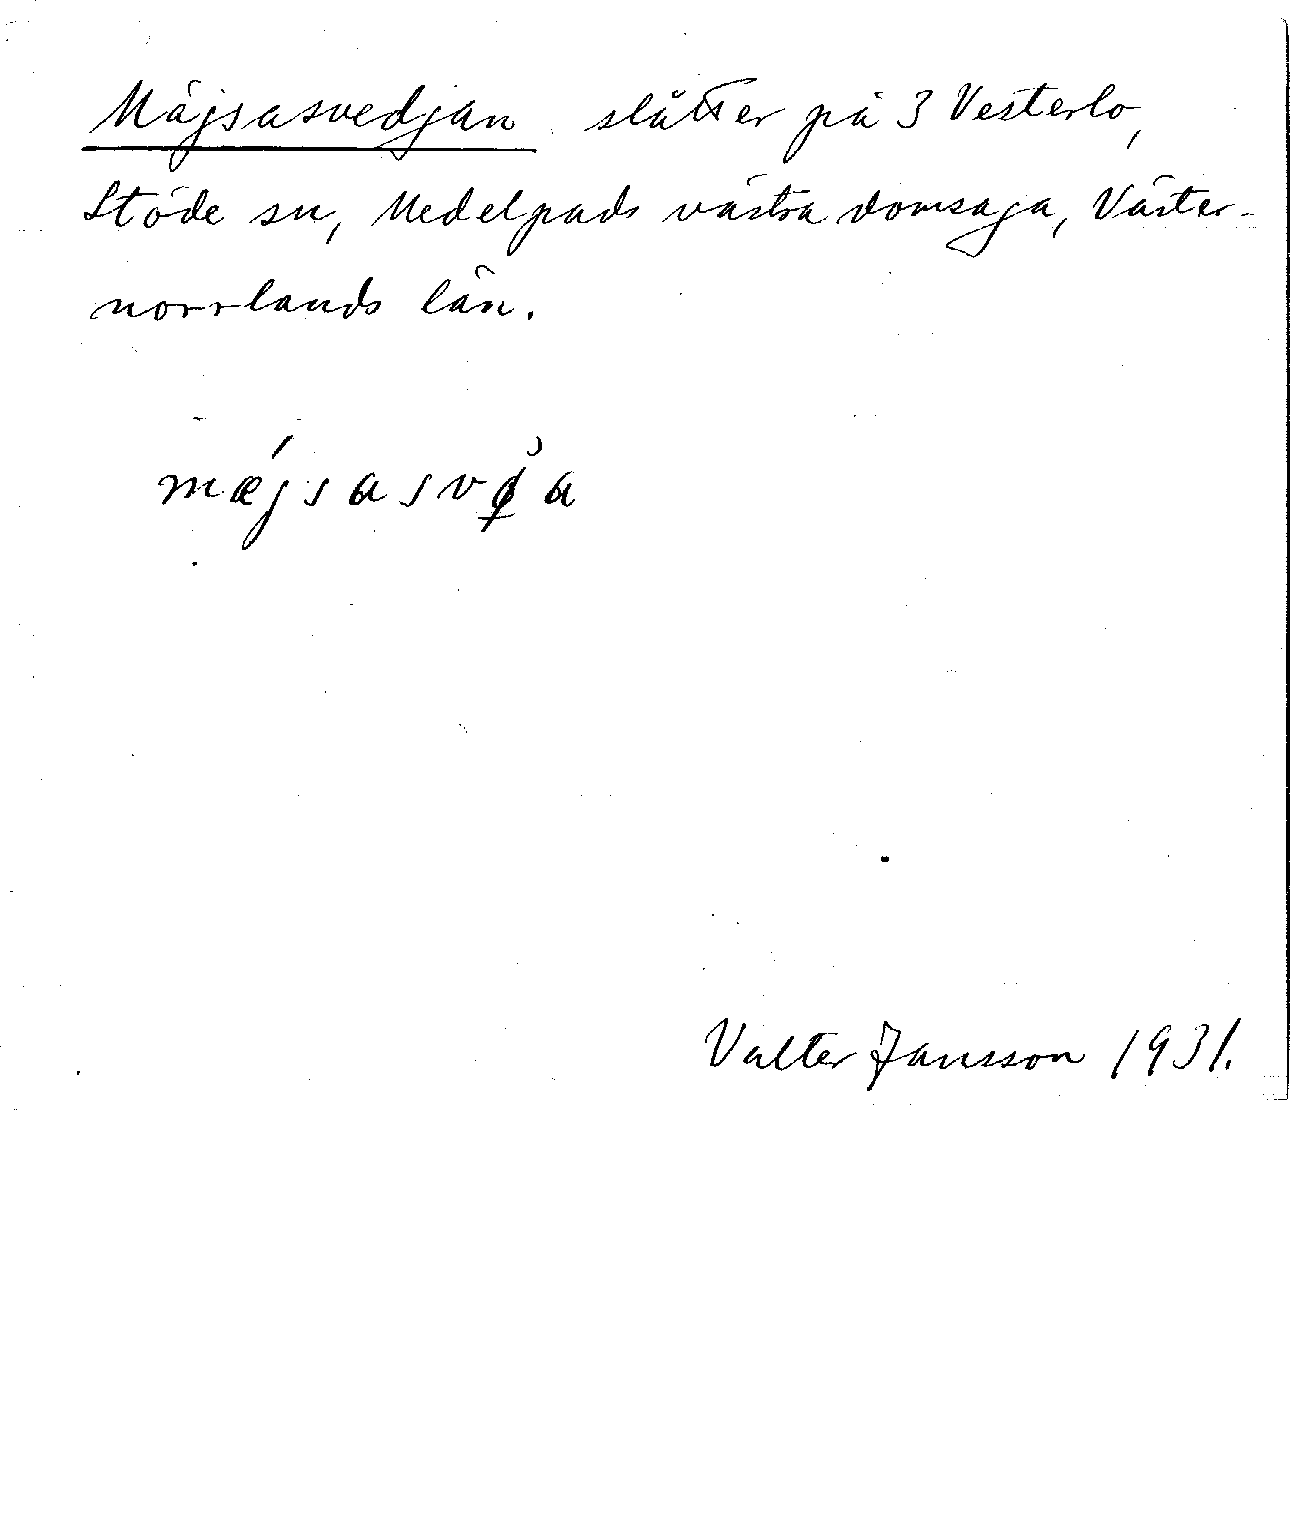 Mäjsasvedjan slåtter på 3 Vesterlo,
Stöde sn, Medelpads västra domsaga, Väster-
norrlands län.
mǽjsasvøa
Valter Jansson 1931.